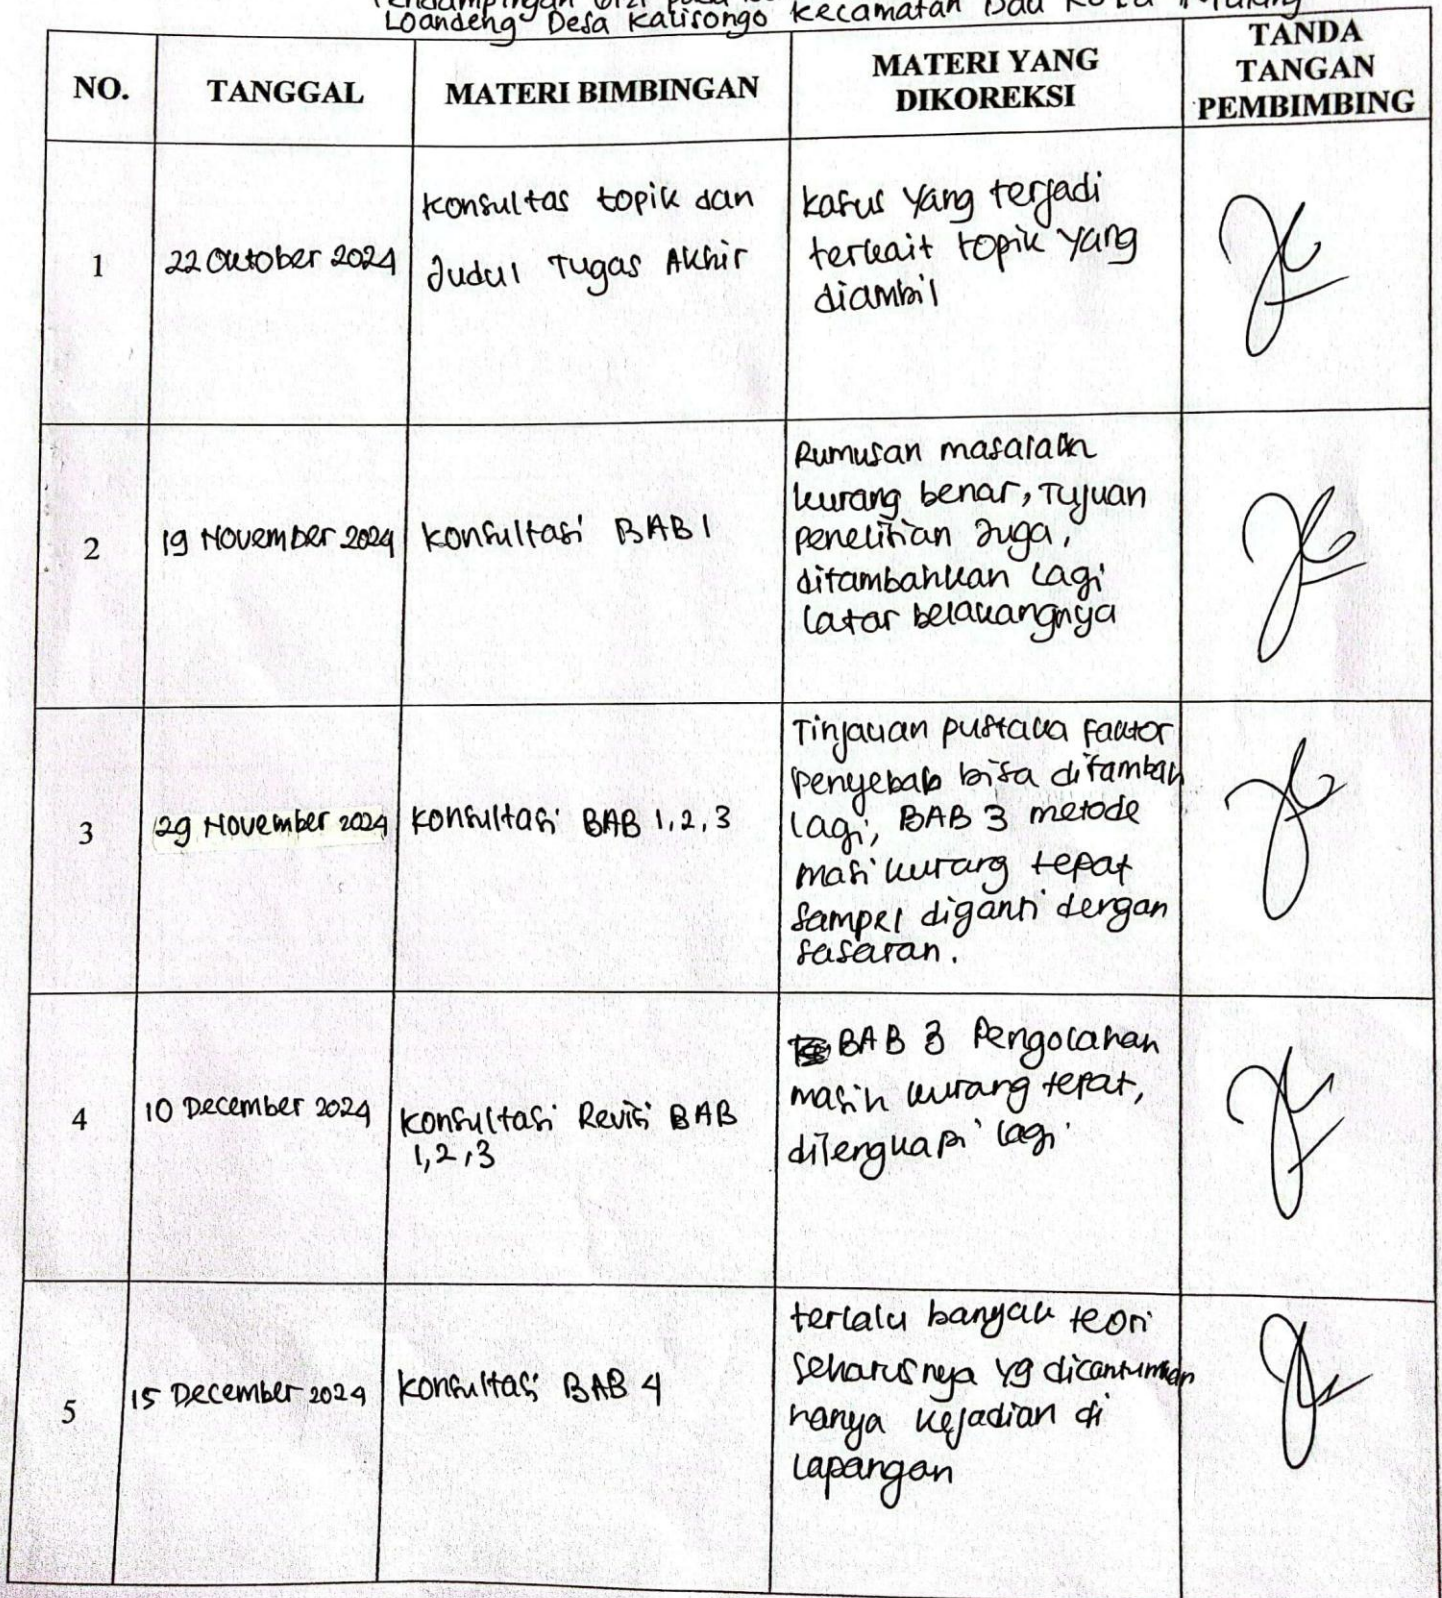 Pendampingan Gizi pada
Loandeng Desa Kalisongo Kecamatan Dau Kota Malang
NO.
TANGGAL
MATERI BIMBINGAN
MATERI YANG
DIKOREKSI
TANDA
TANGAN
PEMBIMBING
1
22 Oktober 2024
Konsultas topik dan
Judul Tugas Akhir
kasus yang terjadi
terkait topik yang
diambil
2
19 November 2024
Konsultasi BAB 1
Rumusan masalah
kurang benar, Tujuan
penelitian Juga,
ditambahkan lagi
latar belakangnya
3
29 November 2024
Konsultasi BAB 1,2,3
Tinjauan pustaka faktor
penyebab bisa ditambah
lagi, BAB 3 metode
masi kurang tepat
sampel diganti dengan
sasaran.
4
10 December 2024
Konsultasi Revisi BAB
1,2,3
BAB 3 Pengolahan
masih kurang tepat,
dilengkapi lagi
5
15 December 2024
Konsultasi BAB 4
terlalu banyak teori
seharusnya yg dicantumkan
hanya kejadian di
lapangan